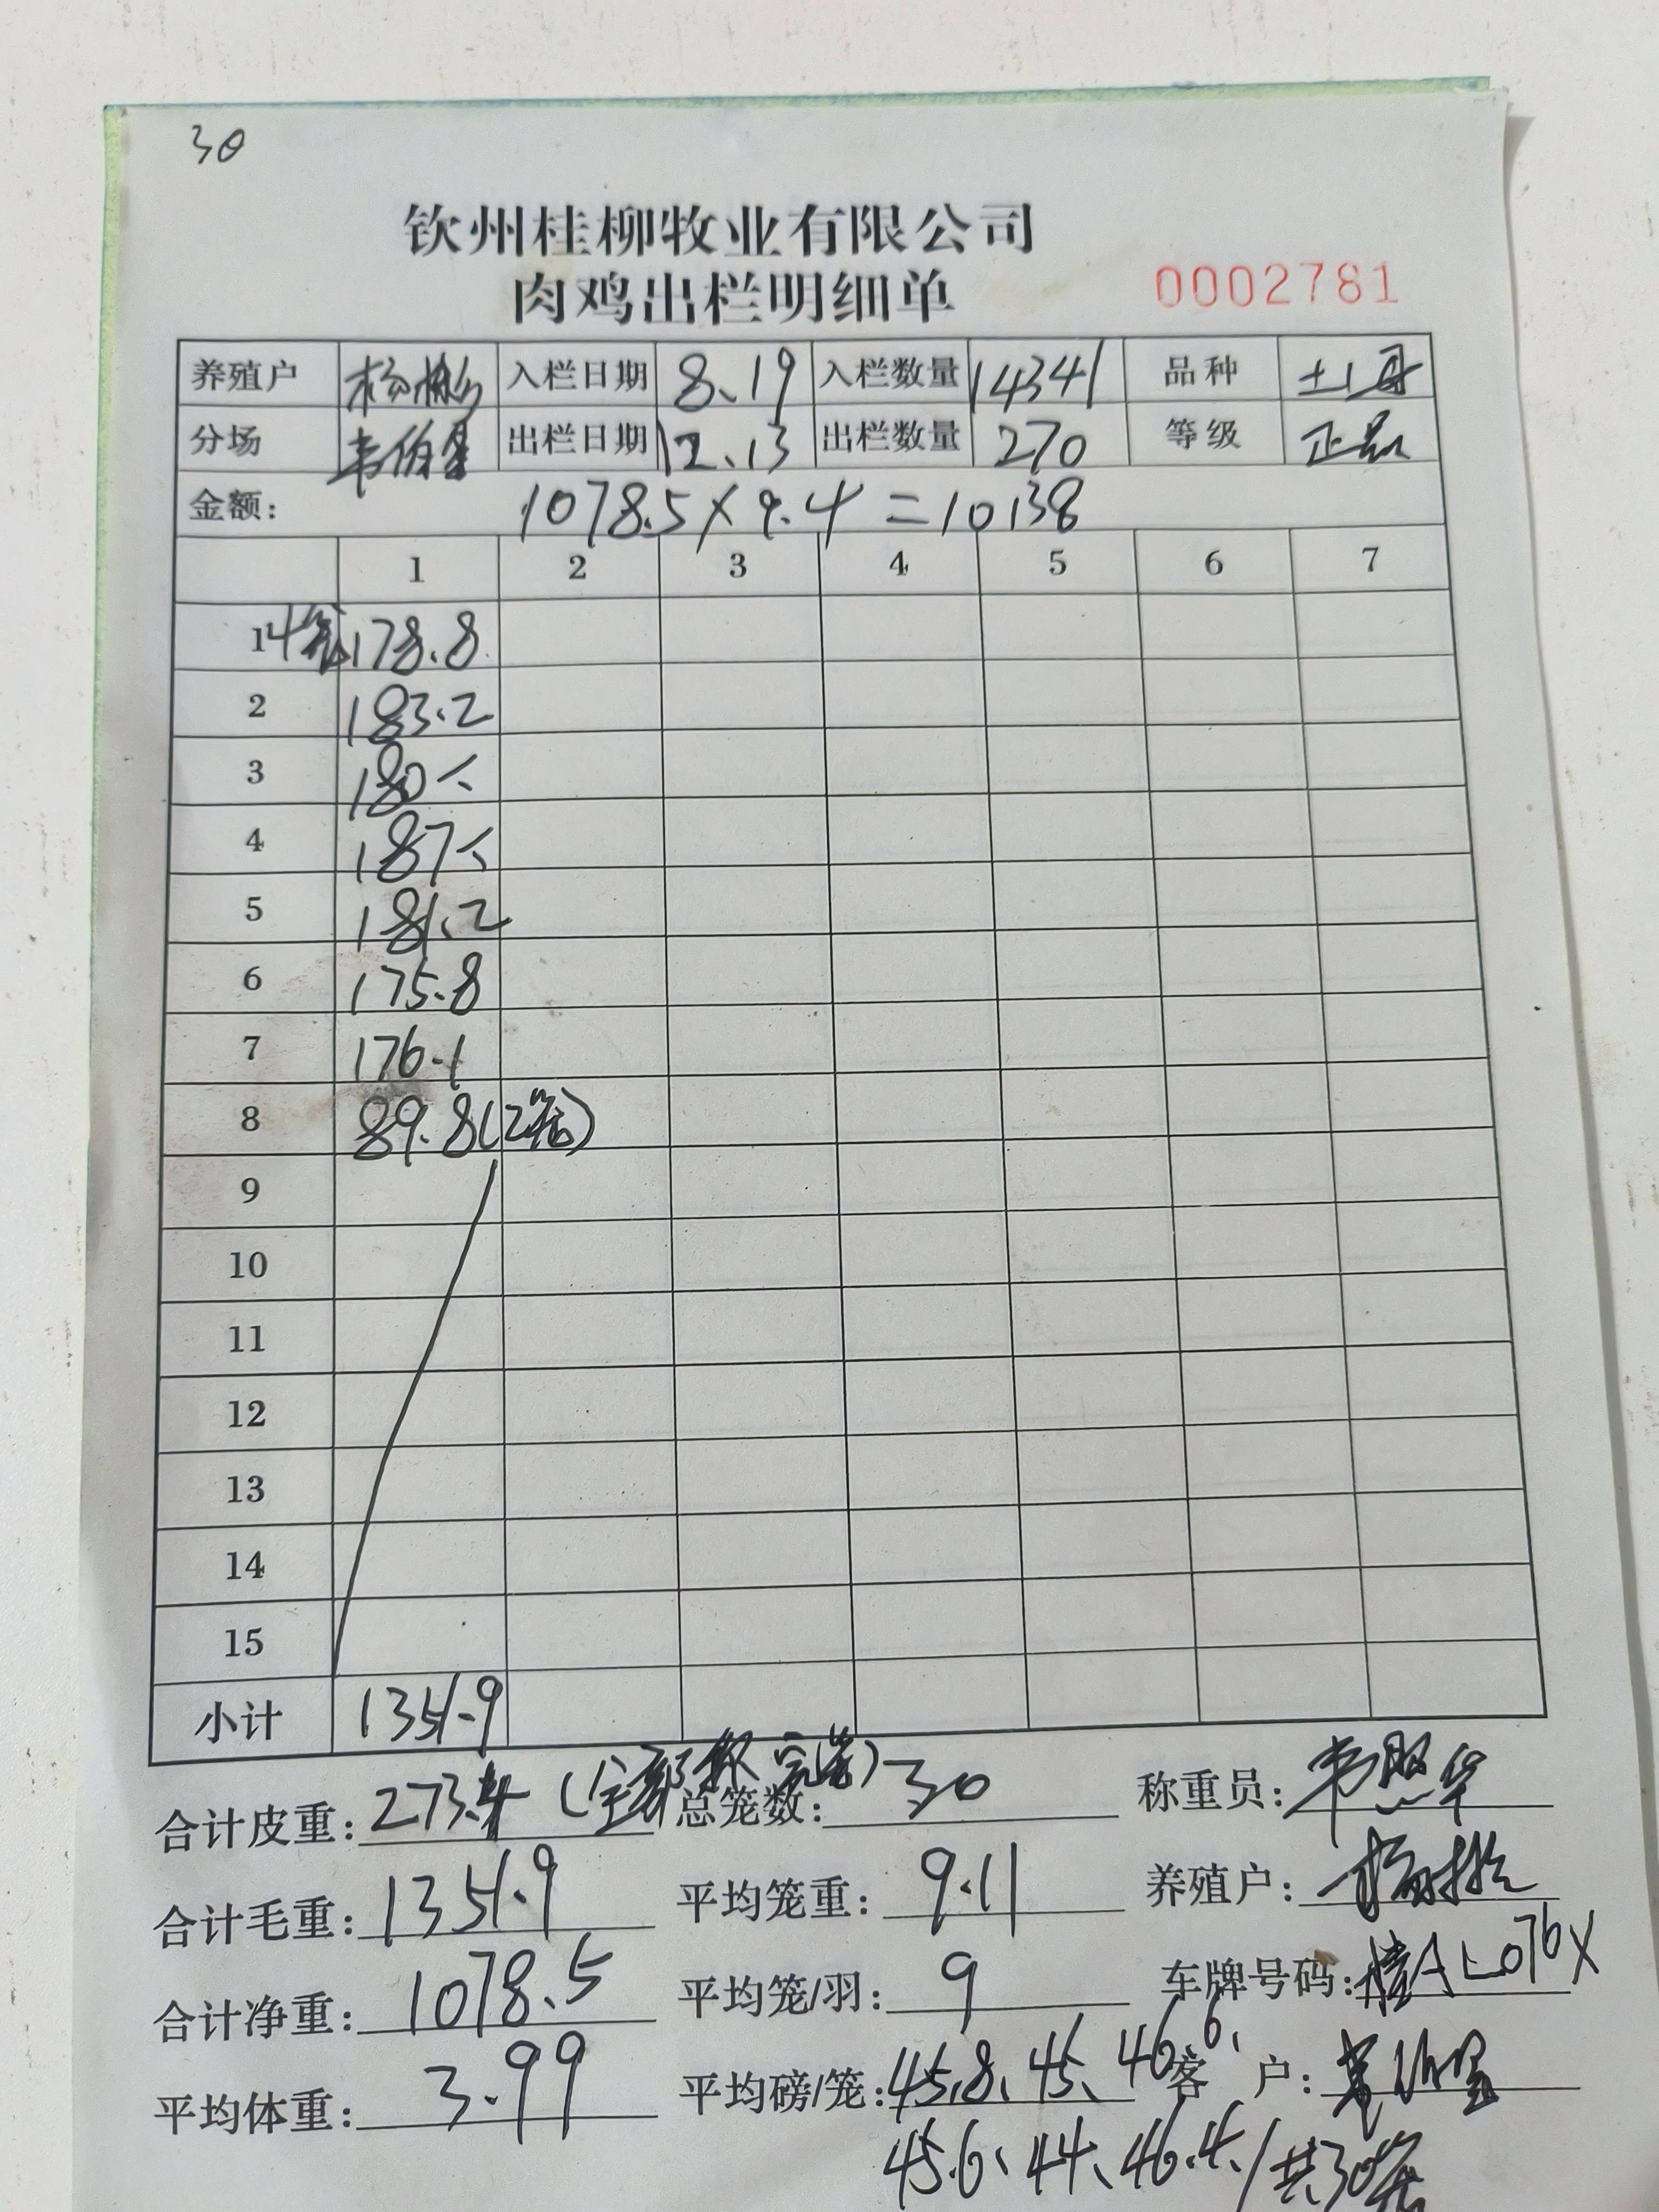 30
钦州桂柳牧业有限公司
肉鸡出栏明细单 0002781
养殖户 入栏日期 8.19 入栏数量 14341 品种 土1
分场 韦伯星 出栏日期 12.13 出栏数量 270 等级 正品
金额: 1078.5×9.4=10138
1 2 3 4 5 6 7
1 4笼 178.8
2 183.2
3 180
4 187
5 181.2
6 175.8
7 176.1
8 89.8(2笼)
9
10
11
12
13
14
15
小计 1351.9
合计皮重: 273.4 (全部 完笼) 总笼数: 30 称重员: 韦照华
合计毛重: 1351.9 平均笼重: 9.11 养殖户:
合计净重: 1078.5 平均笼/羽: 9 车牌号码: 桂AL076X
平均体重: 3.99 平均磅/笼: 45.8、45、46.6、 客 户:
45.6、44、46.4/共30笼